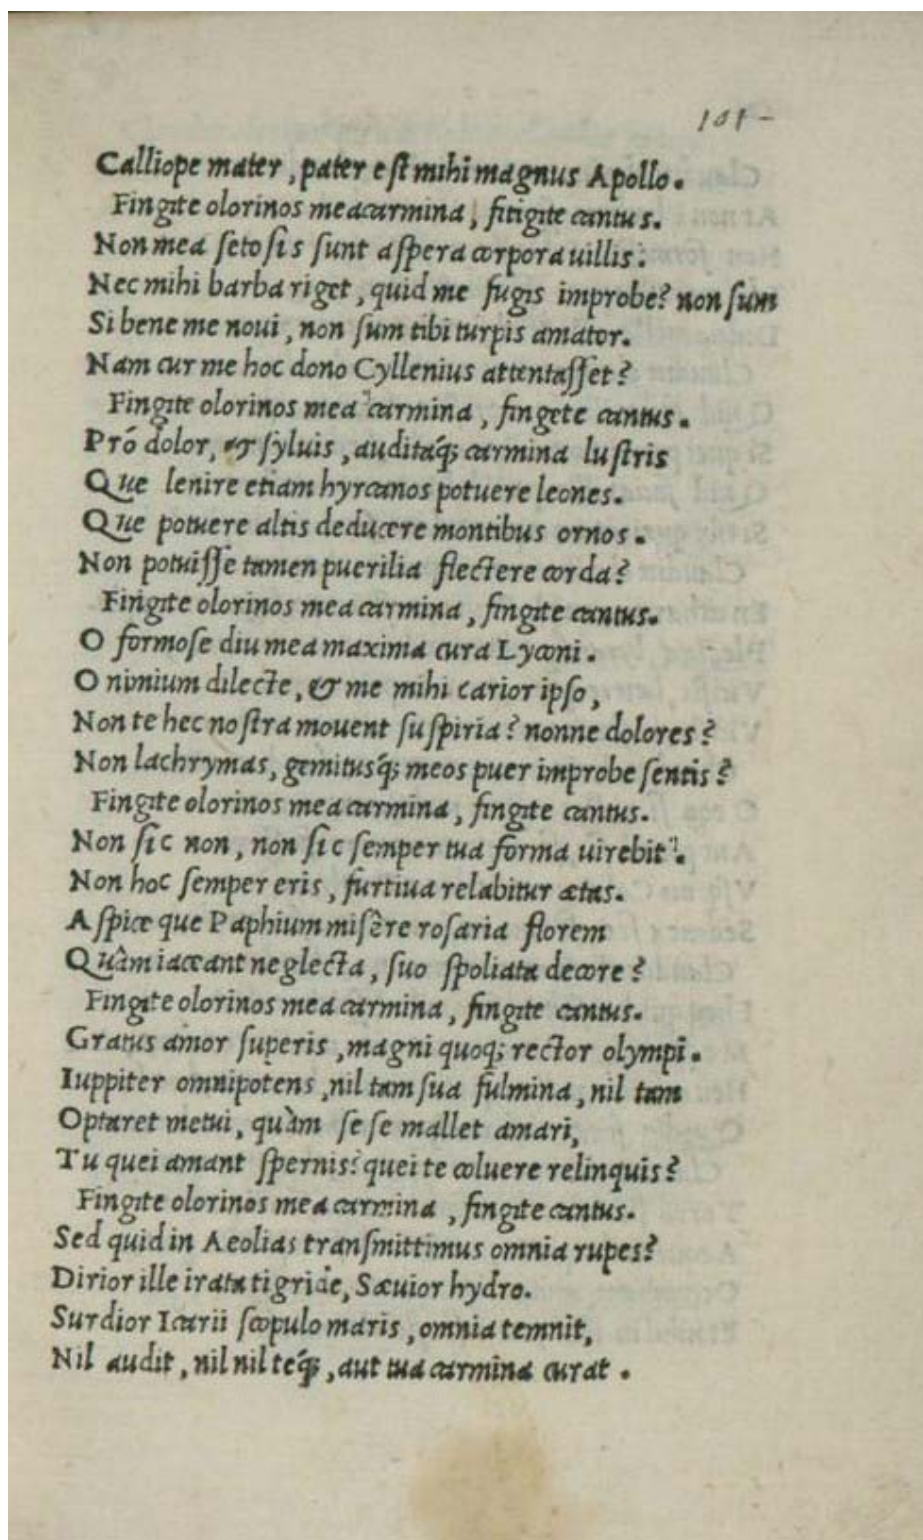 101-
Calliope mater, pater est mihi magnus Apollo.
Fingite olorinos mea carmina, fitigite cantus.
Non mea setosis sunt aspera corpora uillis.
Nec mihi barba riget, quid me fugis improbe? non sum
Si bene me noui, non sum tibi turpis amator.
Nam cur me hoc dono Cyllenius attentasset?
Fingite olorinos mea carmina, fingete cantus.
Pró dolor, & syluis, auditaq́; carmina lustris
Que lenire etiam hyrcanos potuere leones.
Que potuere altis deducere montibus ornos.
Non potuisse tamen puerilia flectere corda?
Fingite olorinos mea carmina, fingite cantus.
O formose diu mea maxima cura Lyconi.
O nimium dilecte, & me mihi carior ipso,
Non te hec nostra mouent suspiria? nonne dolores?
Non lachrymas, gemitusq́; meos puer improbe sentis?
Fingite olorinos mea carmina, fingite cantus.
Non sic non, non sic semper tua forma uirebit.
Non hoc semper eris, furtiua relabitur ætas.
Aspice que Paphium misère rosaria florem
Quàm iaceant neglecta, suo spoliata decore?
Fingite olorinos mea carmina, fingite cantus.
Gratus amor superis, magni quoq; rector olympi.
Iuppiter omnipotens, nil tam sua fulmina, nil tam
Optaret metui, quàm se se mallet amari,
Tu quei amant spernis? quei te coluere relinquis?
Fingite olorinos mea carmina, fingite cantus.
Sed quid in Aeolias transmittimus omnia rupes?
Dirior ille irata tigride, Sæuior hydro.
Surdior Icarii scopulo maris, omnia temnit,
Nil audit, nil nil teq́;, aut tua carmina curat.